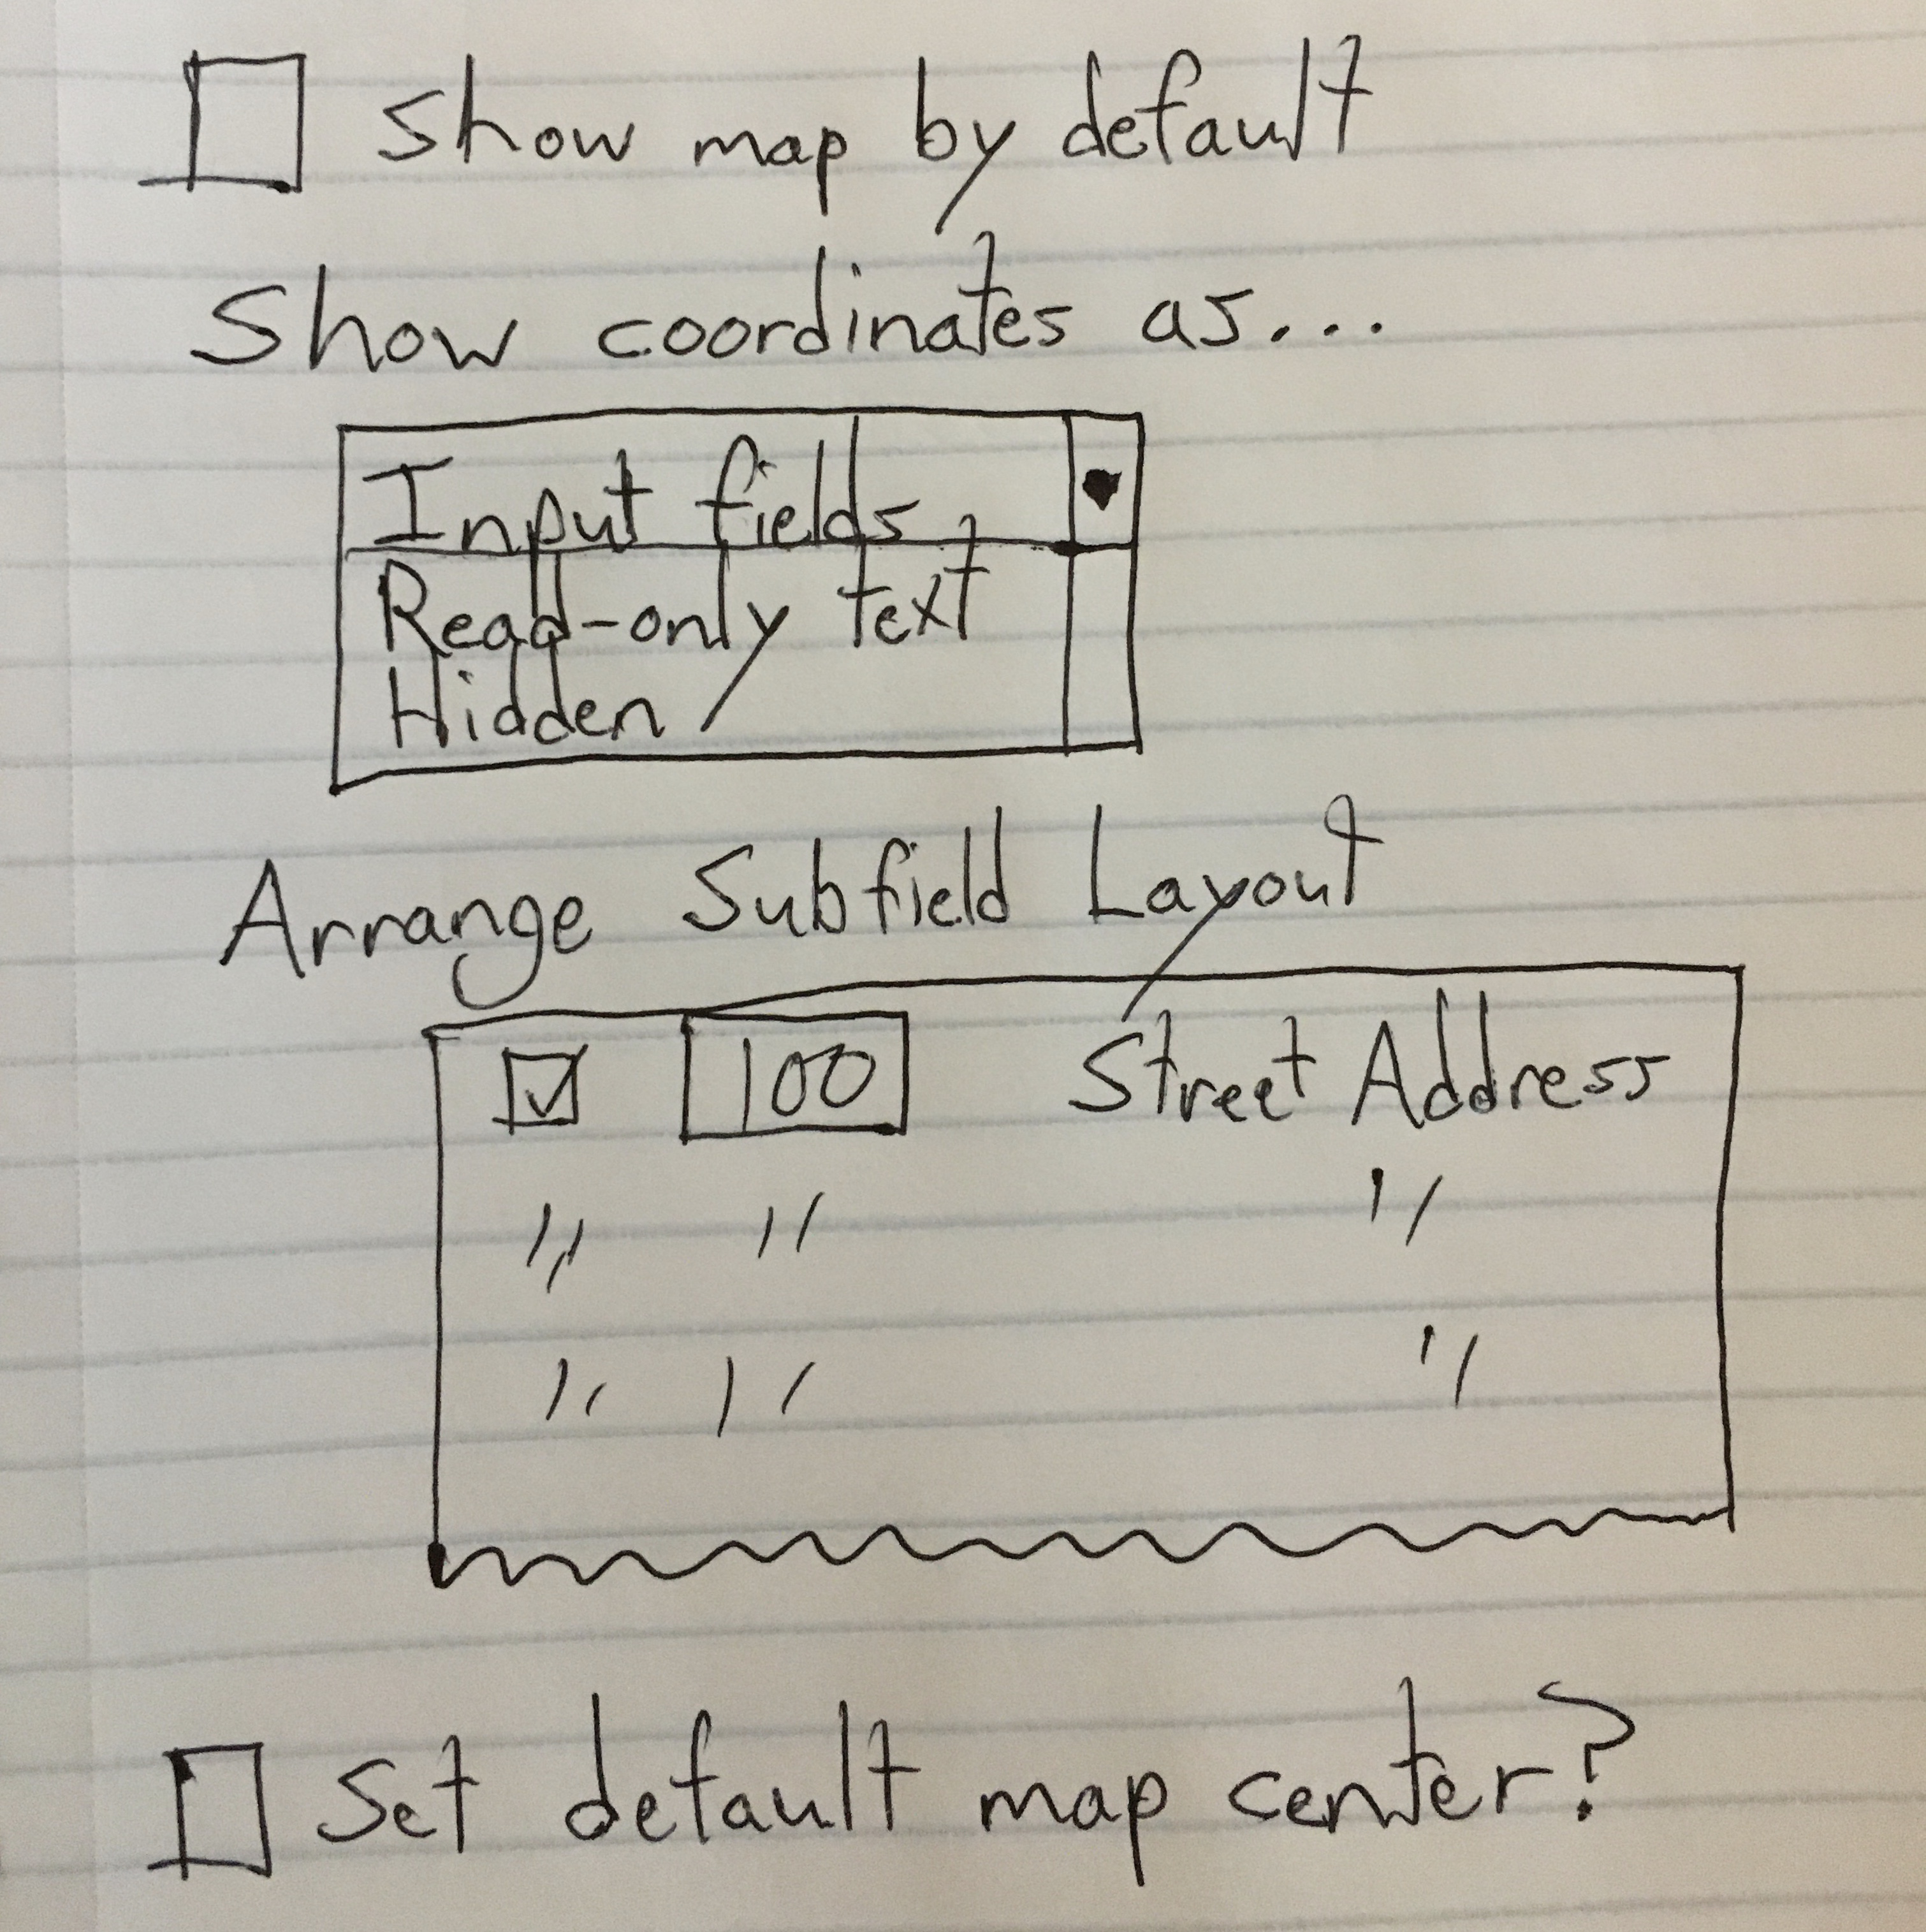 Show map by default
Show coordinates as...
Input fields
Read-only text
Hidden
Arrange Subfield Layout
100 Street Address
" " "
" " "
Set default map center?